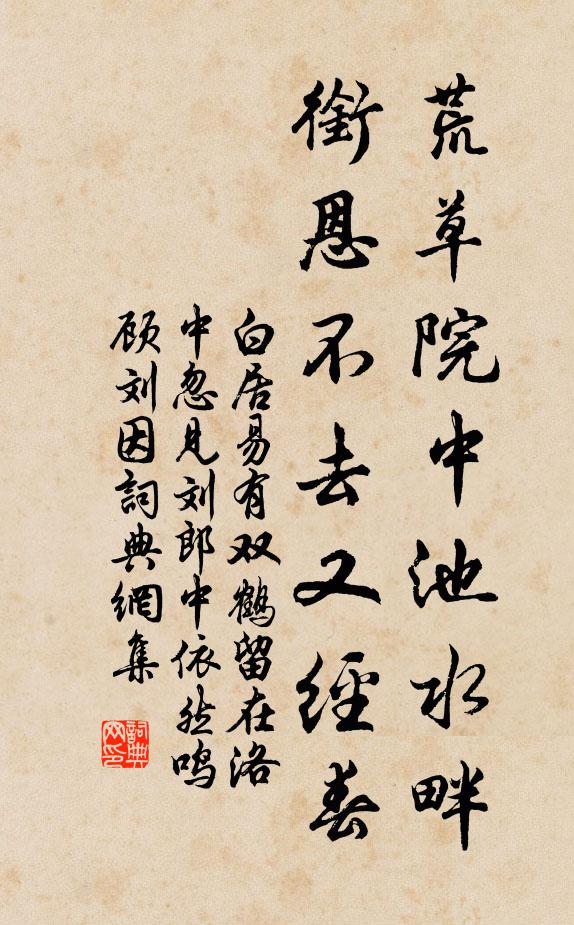 荒草院中池水畔
銜恩不去又經春
白居易有双鶴留在洛
中忽见刘郎中依然鸣
顾刘因詞典網集
詞典
网印